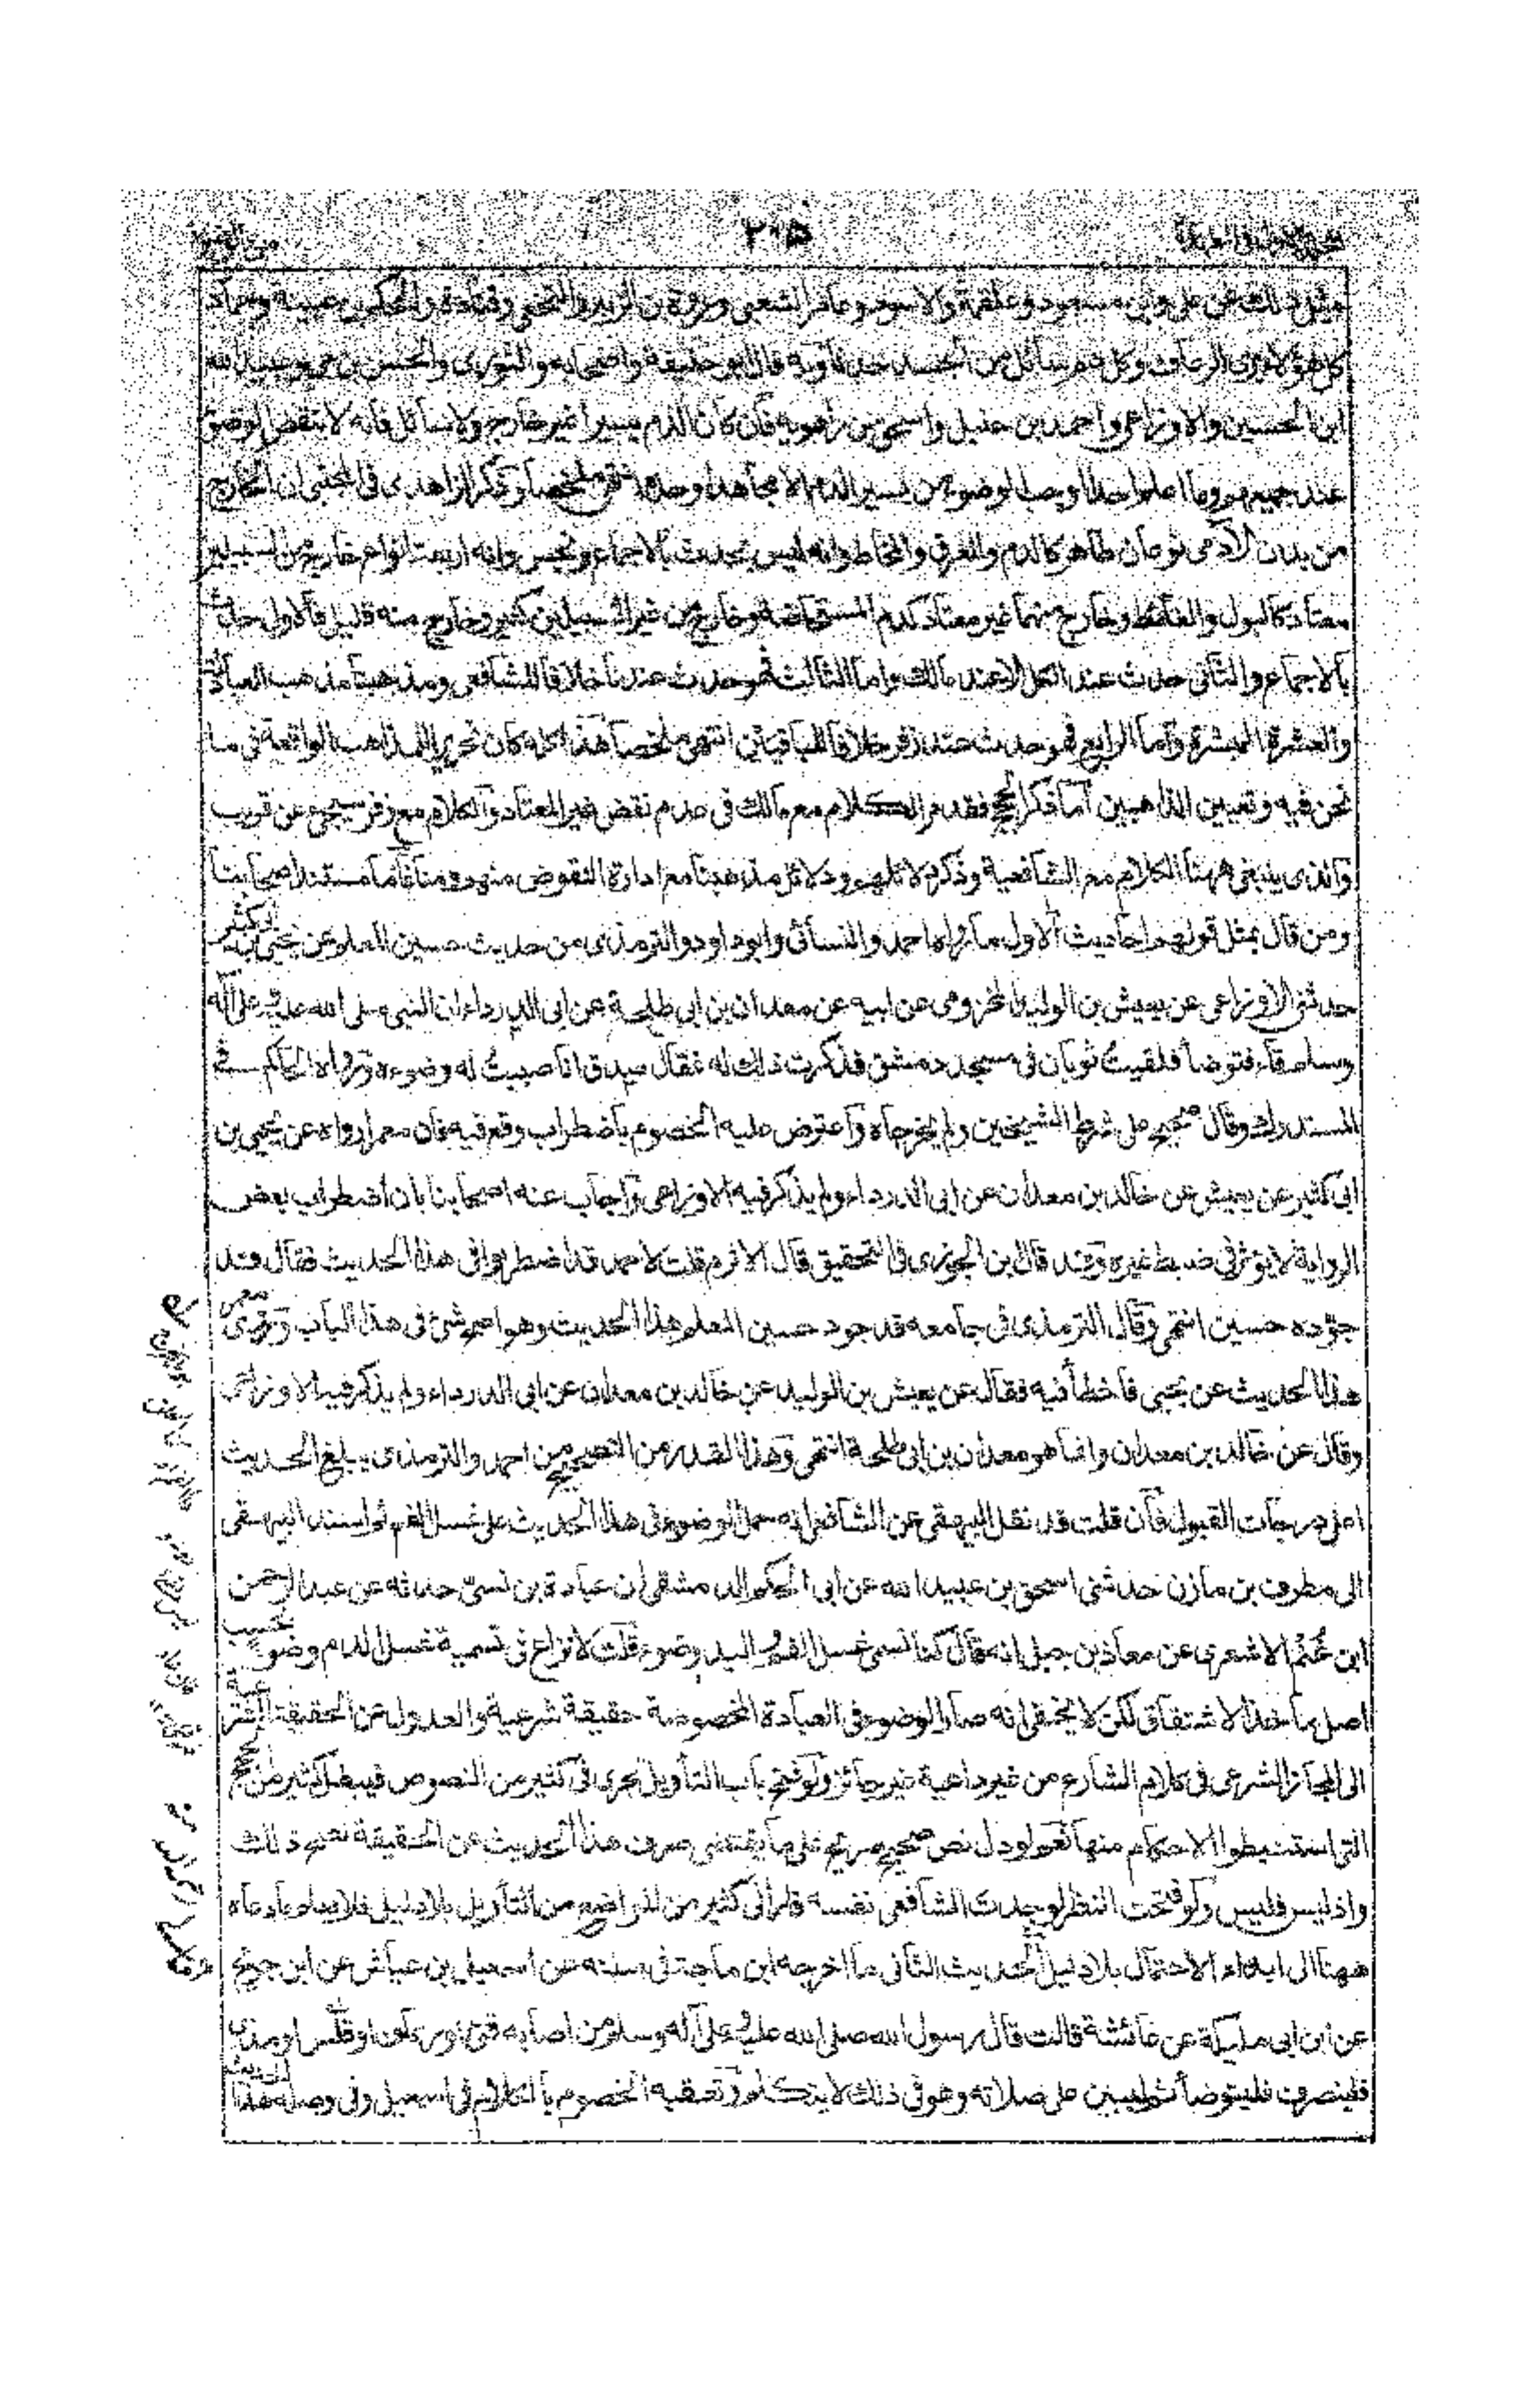 ٢٠٥
مثل ذلك عن علي وابن مسعود وعلقمة والاسود وعامر الشعبي وعروة بن الزبير والنخعي وقتادة والحكم بن عيينة وحماد
كل هؤلاء يرى الرعاف وكل دم سائل من الجسد حدثا وبه قال ابو حنيفة واصحابه والثوري والحسن بن حي وعبيد الله
ابن الحسين والاوزاعي واحمد بن حنبل واسحق بن راهويه فان كان الدم يسيرا غير خارج ولا سائل فانه لا ينقض الوضوء
عند جميعهم وما اعلم احدا اوجب الوضوء من يسير الدم الا مجاهدا وحده انتهى ملخصا وذكر الزاهدى فى المجتبى ان الخارج
من بدن الآدمى نوعان طاهر كالدمع والعرق والمخاط وانه ليس بحدث بالاجماع ونجس وانه اربعة انواع خارج من السبيلين
معتاد كالبول والغائط وخارج منهما غير معتاد كدم المستحاضة وخارج من غير السبيلين كثير وخارج منه قليل فالاول حدث
بالاجماع والثانى حدث عند الكل الا عند مالك واما الثالث فهو حدث عندنا خلافا للشافعى ومذهبنا مذهب العبادلة
والعشرة المبشرة واما الرابع فهو حدث عند زفر خلافا للباقيين انتهى ملخصا هذا كله كان تحرير المذاهب الواقعة فى ما
نحن فيه وتعيين الذاهبين اما ذكر الحجج فقد مر الكلام مع مالك فى عدم نقض غير المعتاد والكلام مع زفر سيجئ عن قريب
والذى ينبغى ههنا الكلام مع الشافعية وذكر دلائلهم ودلائل مذهبنا مع ادارة النقوض منهم ومنا فاما مستند اصحابنا
ومن قال بمثل قولهم فاحاديث الاول ما رواه احمد والنسائى وابوداود والترمذى من حديث حسين المعلم عن يحيى بن ابى كثير
حدثنى الاوزاعى عن يعيش بن الوليد المخزومى عن ابيه عن معدان بن ابى طلحة عن ابى الدرداء ان النبى صلى الله عليه وعلى آله
وسلم قاء فتوضأ فلقيت ثوبان فى مسجد دمشق فذكرت ذلك له فقال صدق انا صببت له وضوءه ورواه الحاكم فى
المستدرك وقال صحيح على شرط الشيخين ولم يخرجاه واعترض عليه الخصوم باضطراب وقع فيه فان معمرا رواه عن يحيى بن
ابى كثير عن يعيش عن خالد بن معدان عن ابى الدرداء ولم يذكر فيه الاوزاعى واجاب عنه اصحابنا بان اضطراب بعض
الرواية لا يؤثر فى ضبط غيره وقد قال ابن الجوزى فى التحقيق قال الاثرم قلت لاحمد قد اضطربوا فى هذا الحديث فقال قد
جوده حسين انتهى وقال الترمذى فى جامعه قد جود حسين المعلم هذا الحديث وهو اصح شئ فى هذا الباب وروى معمر
هذا الحديث عن يحيى فاخطأ فيه فقال عن يعيش بن الوليد عن خالد بن معدان عن ابى الدرداء ولم يذكر فيه الاوزاعى
وقال عن خالد بن معدان وانما هو معدان بن ابى طلحة انتهى وهذا القدر من التصحيح من احمد والترمذى يبلغ الحديث
اعلى درجات القبول فان قلت قد نقل البيهقى عن الشافعى انه حمل الوضوء فى هذا الحديث على غسل الفم ثم اسند البيهقى
الى مطرف بن مازن حدثنى اسحق بن عبيد الله عن ابى الحكم الدمشقى ان عبادة بن نسىّ حدثه عن عبد الرحمن
ابن غنم الاشعرى عن معاذ بن جبل انه قال كنا نسمى غسل الفم واليد وضوء قلت لا نزاع فى تسمية غسل الدم وضوء بحسب
اصل ماخذ الاشتقاق لكن لا يخفى انه صار الوضوء فى العبادة المخصوصة حقيقة شرعية والعدول عن الحقيقة الشرعية
الى المجاز الشرعى فى كلام الشارع من غير داعية غير جائز ولو فتح باب التأويل لجرى فى كثير من النصوص فيبطل كثير من الحجج
التى استنبطوا الاحكام منها نعم لو دل نص صحيح صريح على ما يقتضى صرف هذا الحديث عن الحقيقة لصح ذلك
واذ ليس فليس ولو فتحت النظر لوجدت الشافعى نفسه فارا فى كثير من المواضع من التأويل بلا دليل فلا يصار ما دعاه
ههنا الى ابداء الاحتمال بلا دليل الحديث الثانى ما اخرجه ابن ماجة فى سننه عن اسمعيل بن عياش عن ابن جريج
عن ابن ابى مليكة عن عائشة قالت قال رسول الله صلى الله عليه وعلى آله وسلم من اصابه قئ او رعاف او قلس او مذى
فلينصرف فليتوضأ ثم ليبن على صلاته وهو فى ذلك لا يتكلم وتعقبه الخصوم بالكلام فى اسمعيل وفى وصله هذا الحديث